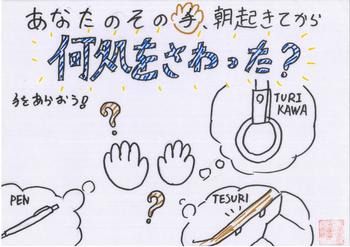 あなたのその手、朝起きてから
何処をさわった?
手をあらおう!
?
TURI
KAWA
?
PEN
TESURI